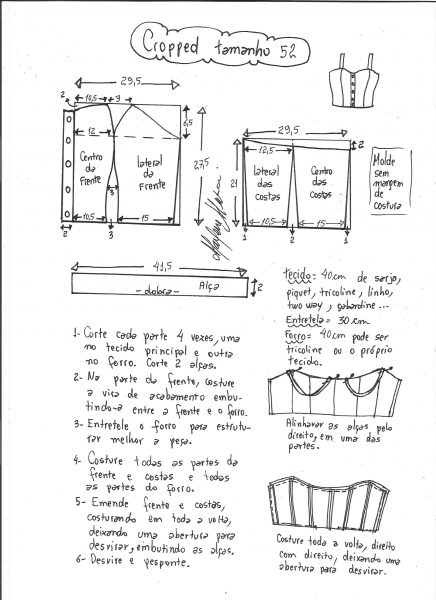 Cropped tamanho 52
29,5
2
10,5
3
6,5
12
Centro da frente
lateral da frente
3
27,5
10,5
15
2
3
29,5
12,5
2
21
lateral das costas
Centro das costas
10,5
15
1
2
1
Molde
sem
margem
de
costura
41,5
Alça
- dobra -
2
tecido = 40cm de sarja,
piquet, tricoline, linho,
two way, gabardine...
Entretela = 30cm
Forro = 40cm pode ser
tricoline ou o próprio
tecido.
1- Corte cada parte 4 vezes, uma
no tecido principal e outra
no forro. Corte 2 alças.
2- Na parte da frente, costure
a vira de acabamento embu-
tindo-a entre a frente e o forro.
3- Entretele o forro para estrutu-
rar melhor a peça.
4- Costure todas as partes da
frente e costas e todas
as partes do forro.
5- Emende frente e costas,
costurando em toda a volta,
deixando uma abertura para
desvirar, embutindo as alças.
6- Desvire e pesponte.
Alinhavar as alças pelo
direito, em uma das
partes.
Costure toda a volta, direito
com direito, deixando uma
abertura para desvirar.